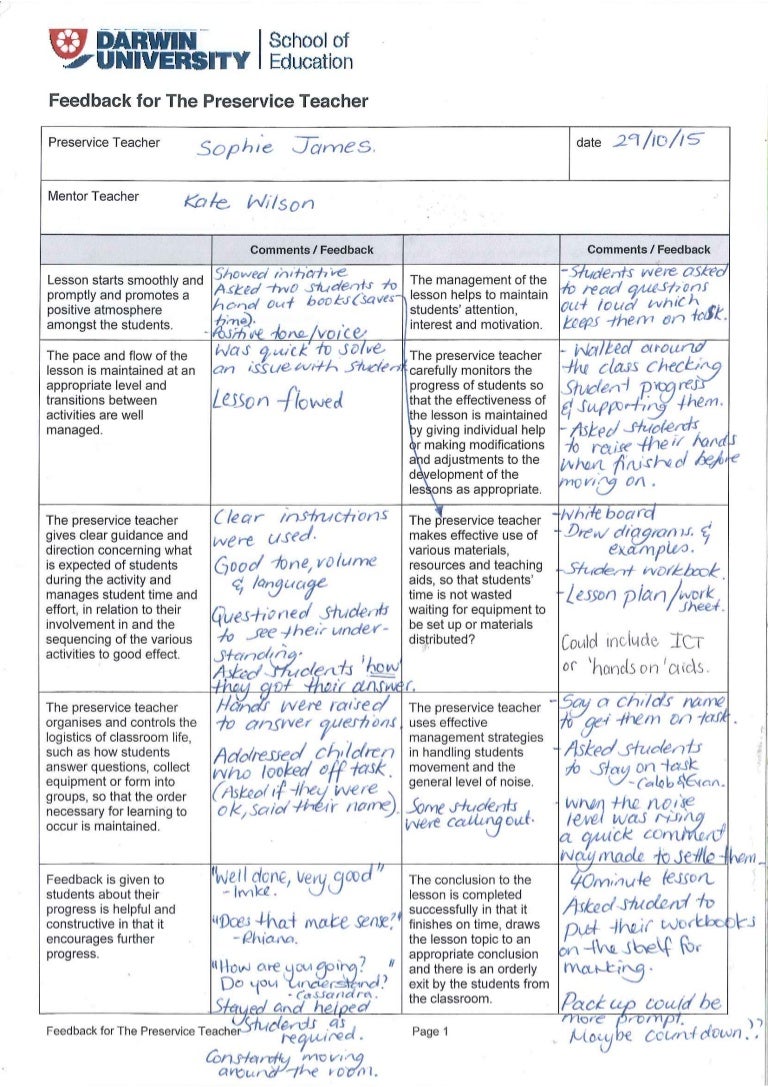 DARWIN
UNIVERSITY
School of
Education
Feedback for The Preservice Teacher
Preservice Teacher Sophie James.
date 29/10/15
Mentor Teacher Kate Wilson
Comments / Feedback
Comments / Feedback
Lesson starts smoothly and
promptly and promotes a
positive atmosphere
amongst the students.
Showed initiative
Asked two students to
hand out books (saves
time).
- Positive tone/voice
The management of the
lesson helps to maintain
students' attention,
interest and motivation.
- Students were asked
to read questions
out loud which
keeps them on task.
The pace and flow of the
lesson is maintained at an
appropriate level and
transitions between
activities are well
managed.
Was quick to solve
an issue with student
Lesson flowed
The preservice teacher
carefully monitors the
progress of students so
that the effectiveness of
the lesson is maintained
by giving individual help
or making modifications
and adjustments to the
development of the
lessons as appropriate.
- Walked around
the class checking
student progress
& supporting them.
- Asked students
to raise their hands
when finished before
moving on.
The preservice teacher
gives clear guidance and
direction concerning what
is expected of students
during the activity and
manages student time and
effort, in relation to their
involvement in and the
sequencing of the various
activities to good effect.
Clear instructions
were used.
Good tone, volume
& language
Questioned students
to see their under-
standing.
Asked students 'how
they got their answer.
The preservice teacher
makes effective use of
various materials,
resources and teaching
aids, so that students'
time is not wasted
waiting for equipment to
be set up or materials
distributed?
- Whiteboard
- Drew diagrams. &
examples.
- Student workbook.
- Lesson plan/work
sheet.
Could include ICT
or 'hands on' aids.
The preservice teacher
organises and controls the
logistics of classroom life,
such as how students
answer questions, collect
equipment or form into
groups, so that the order
necessary for learning to
occur is maintained.
Hands were raised
to answer questions.
Addressed children
who looked off task.
(Asked if they were
ok, said their name).
The preservice teacher
uses effective
management strategies
in handling students
movement and the
general level of noise.
Some students
were calling out.
- Say a childs name
to get them on task.
- Asked students
to stay on task
- Caleb & Evan.
- when the noise
level was rising
a quick comment
way made to settle them
Feedback is given to
students about their
progress is helpful and
constructive in that it
encourages further
progress.
"Well done, very good"
- Imke.
"Does that make sense?"
- Rhiana.
"How are you going? "
Do you understand?
- Cassandra.
Stayed and helped
students as
required.
Constantly moving
around the room.
The conclusion to the
lesson is completed
successfully in that it
finishes on time, draws
the lesson topic to an
appropriate conclusion
and there is an orderly
exit by the students from
the classroom.
40minute lesson
Asked student to
put their workbooks
on the shelf for
marking.
Pack up could be
more prompt.
Maybe countdown??
Feedback for The Preservice Teacher
Page 1